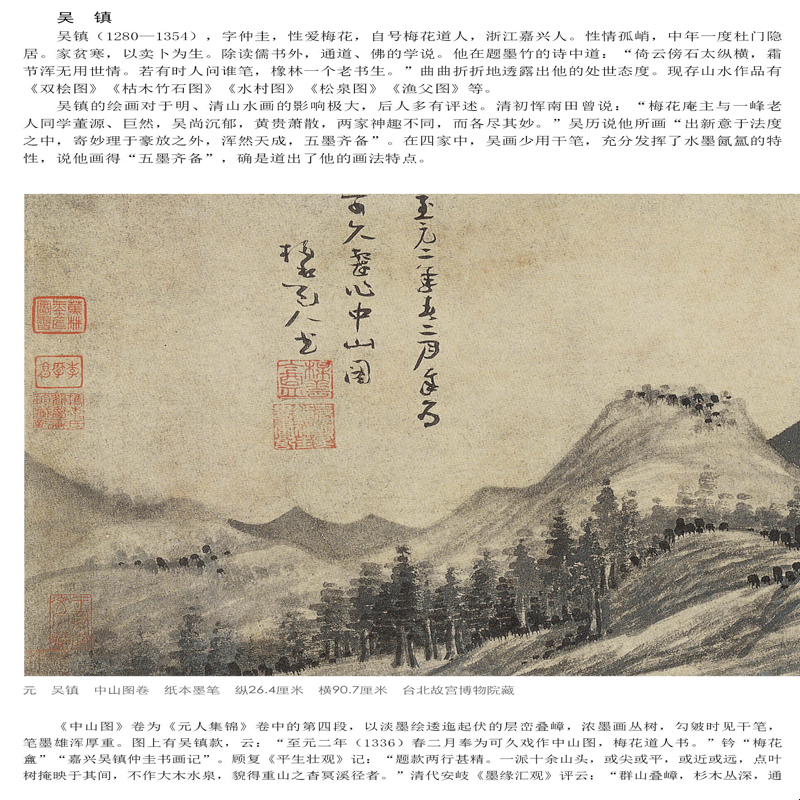 吴 镇
吴镇（1280—1354），字仲圭，性爱梅花，自号梅花道人，浙江嘉兴人。性情孤峭，中年一度杜门隐
居。家贫寒，以卖卜为生。除读儒书外，通道、佛的学说。他在题墨竹的诗中道：“倚云傍石太纵横，霜
节浑无用世情。若有时人问谁笔，橡林一个老书生。”曲曲折折地透露出他的处世态度。现存山水作品有
《双桧图》《枯木竹石图》《水村图》《松泉图》《渔父图》等。
吴镇的绘画对于明、清山水画的影响极大，后人多有评述。清初恽南田曾说：“梅花庵主与一峰老
人同学董源、巨然，吴尚沉郁，黄贵萧散，两家神趣不同，而各尽其妙。”吴历说他所画“出新意于法度
之中，寄妙理于豪放之外，浑然天成，五墨齐备”。在四家中，吴画少用干笔，充分发挥了水墨氤氲的特
性，说他画得“五墨齐备”，确是道出了他的画法特点。
至元二年春二月奉为
可久戏作中山图
梅花道人书
元 吴镇 中山图卷 纸本墨笔 纵26.4厘米 横90.7厘米 台北故宫博物院藏
《中山图》卷为《元人集锦》卷中的第四段，以淡墨绘逶迤起伏的层峦叠嶂，浓墨画丛树，勾皴时见干笔，
笔墨雄浑厚重。图上有吴镇款，云：“至元二年（1336）春二月奉为可久戏作中山图，梅花道人书。”钤“梅花
盦”“嘉兴吴镇仲圭书画记”。顾复《平生壮观》记：“题款两行甚精。一派十余山头，或尖或平，或近或远，点叶
树掩映于其间，不作大木水泉，貌得重山之杳冥溪径者。”清代安岐《墨缘汇观》评云：“群山叠嶂，杉木丛深，通